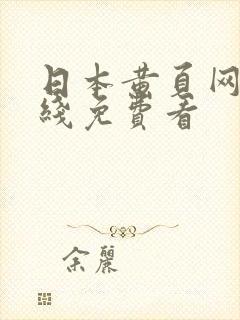 日本黄页网
线免费看
余丽